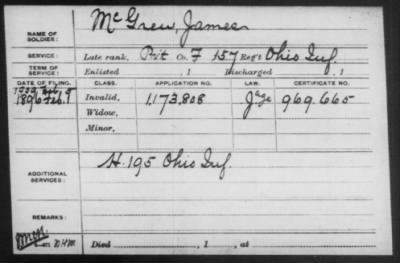 NAME OF SOLDIER: McGrew, James
SERVICE: Late rank, Pvt Co. F 157 Reg't Ohio Inf.
TERM OF SERVICE: Enlisted , 1 Discharged , 1
DATE OF FILING. CLASS. APPLICATION NO. LAW. CERTIFICATE NO.
1896 Feb. 8 Invalid, 1,173,808 969,665
Widow,
Minor,
ADDITIONAL SERVICES: H. 195 Ohio Inf.
REMARKS:
Died , 1 , at